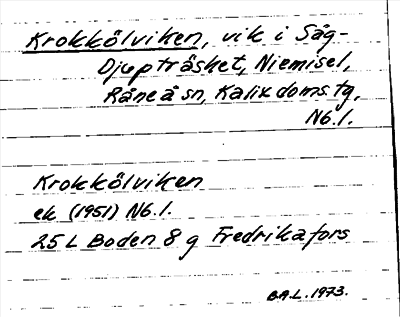 Krokkölviken, vik i Såg-
Djupträsket, Niemisel,
Råneå sn, Kalix doms.tg,
Nb.l.
Krokkölviken
ek (1951) Nb.l.
25 L Boden 8 g Fredrikafors
B.A.L. 1973.